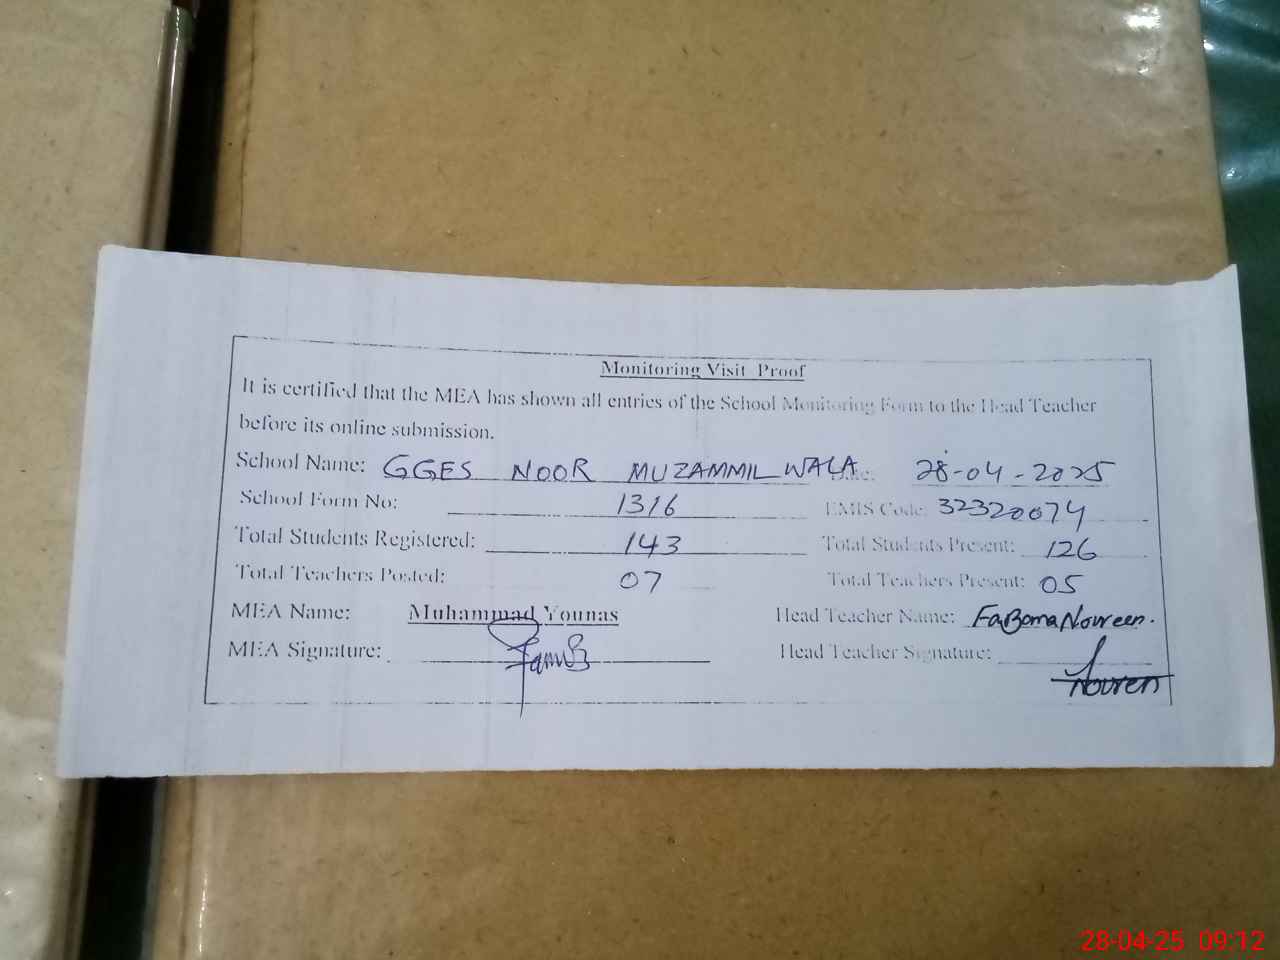 Monitoring Visit Proof
It is certified that the MEA has shown all entries of the School Monitoring Form to the Head Teacher
before its online submission.
School Name: GGES NOOR MUZAMMIL WALA Date: 28-04-2025
School Form No: 1316 EMIS Code: 32320074
Total Students Registered: 143 Total Students Present: 126
Total Teachers Posted: 07 Total Teachers Present: 05
MEA Name: Muhammad Younas Head Teacher Name: Noureen.
MEA Signature: Head Teacher Signature:
28-04-25 09:12